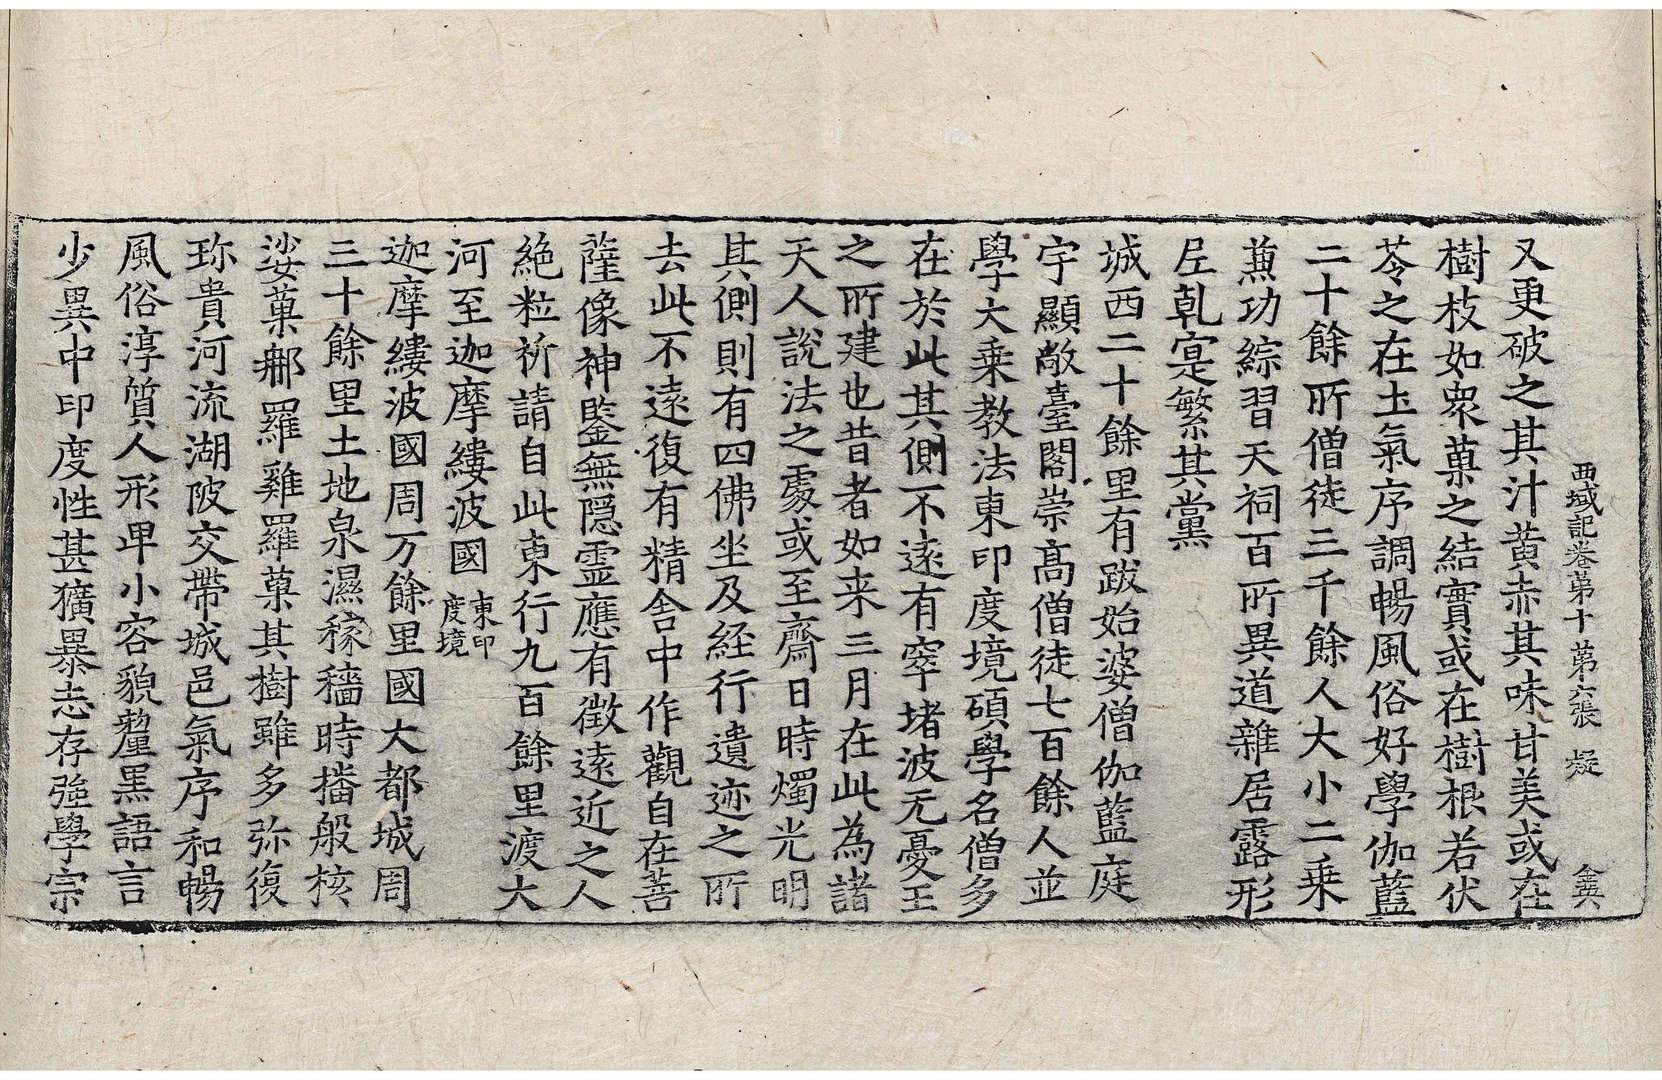 西域記卷第十 第六張 疑 金兴
又更破之其汁黄赤其味甘美或在
樹枝如衆菓之結實或在樹根若伏
苓之在土氣序調暢風俗好學伽藍
二十餘所僧徒三千餘人大小二乗
兼功綜習天祠百所異道雜居露形
尼乹寔繁其黨
城西二十餘里有跋始婆僧伽藍庭
宇顯敞臺閣崇髙僧徒七百餘人並
學大乗教法東印度境碩學名僧多
在於此其側不遠有窣堵波无憂王
之所建也昔者如来三月在此為諸
天人說法之處或至齋日時燭光明
其側則有四佛坐及経行遺迹之所
去此不遠復有精舎中作觀自在菩
薩像神鑒無隠霊應有徵遠近之人
絶粒祈請自此東行九百餘里渡大
河至迦摩縷波國 東印度境
迦摩縷波國周万餘里國大都城周
三十餘里土地泉濕稼穡時播般核
娑菓𨚗羅雞羅菓其樹雖多弥復
珎貴河流湖陂交帶城邑氣序和暢
風俗淳質人形卑小容貌黧黑語言
少異中印度性甚獷暴志存強學宗